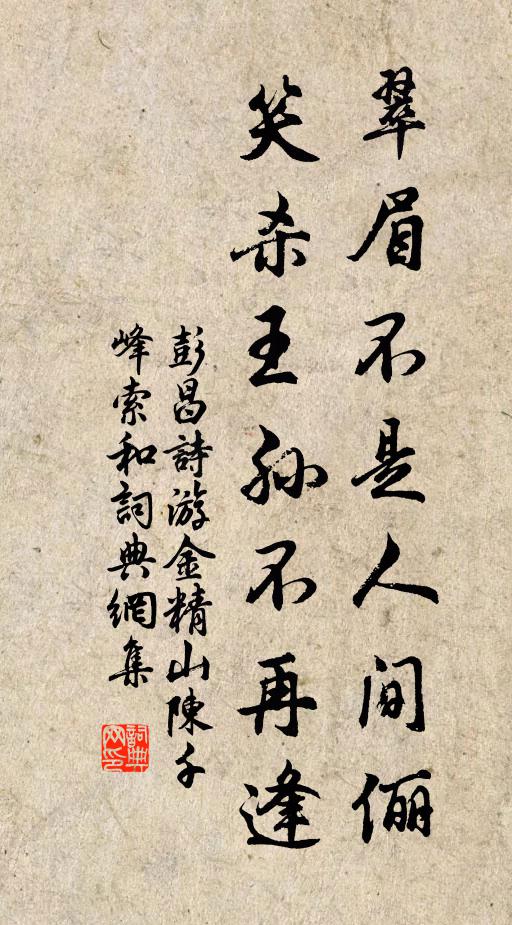 翠眉不是人間儷
笑殺王孫不再逢
彭昌詩游金精山陳千
峰索和詞典網集
詞典網印